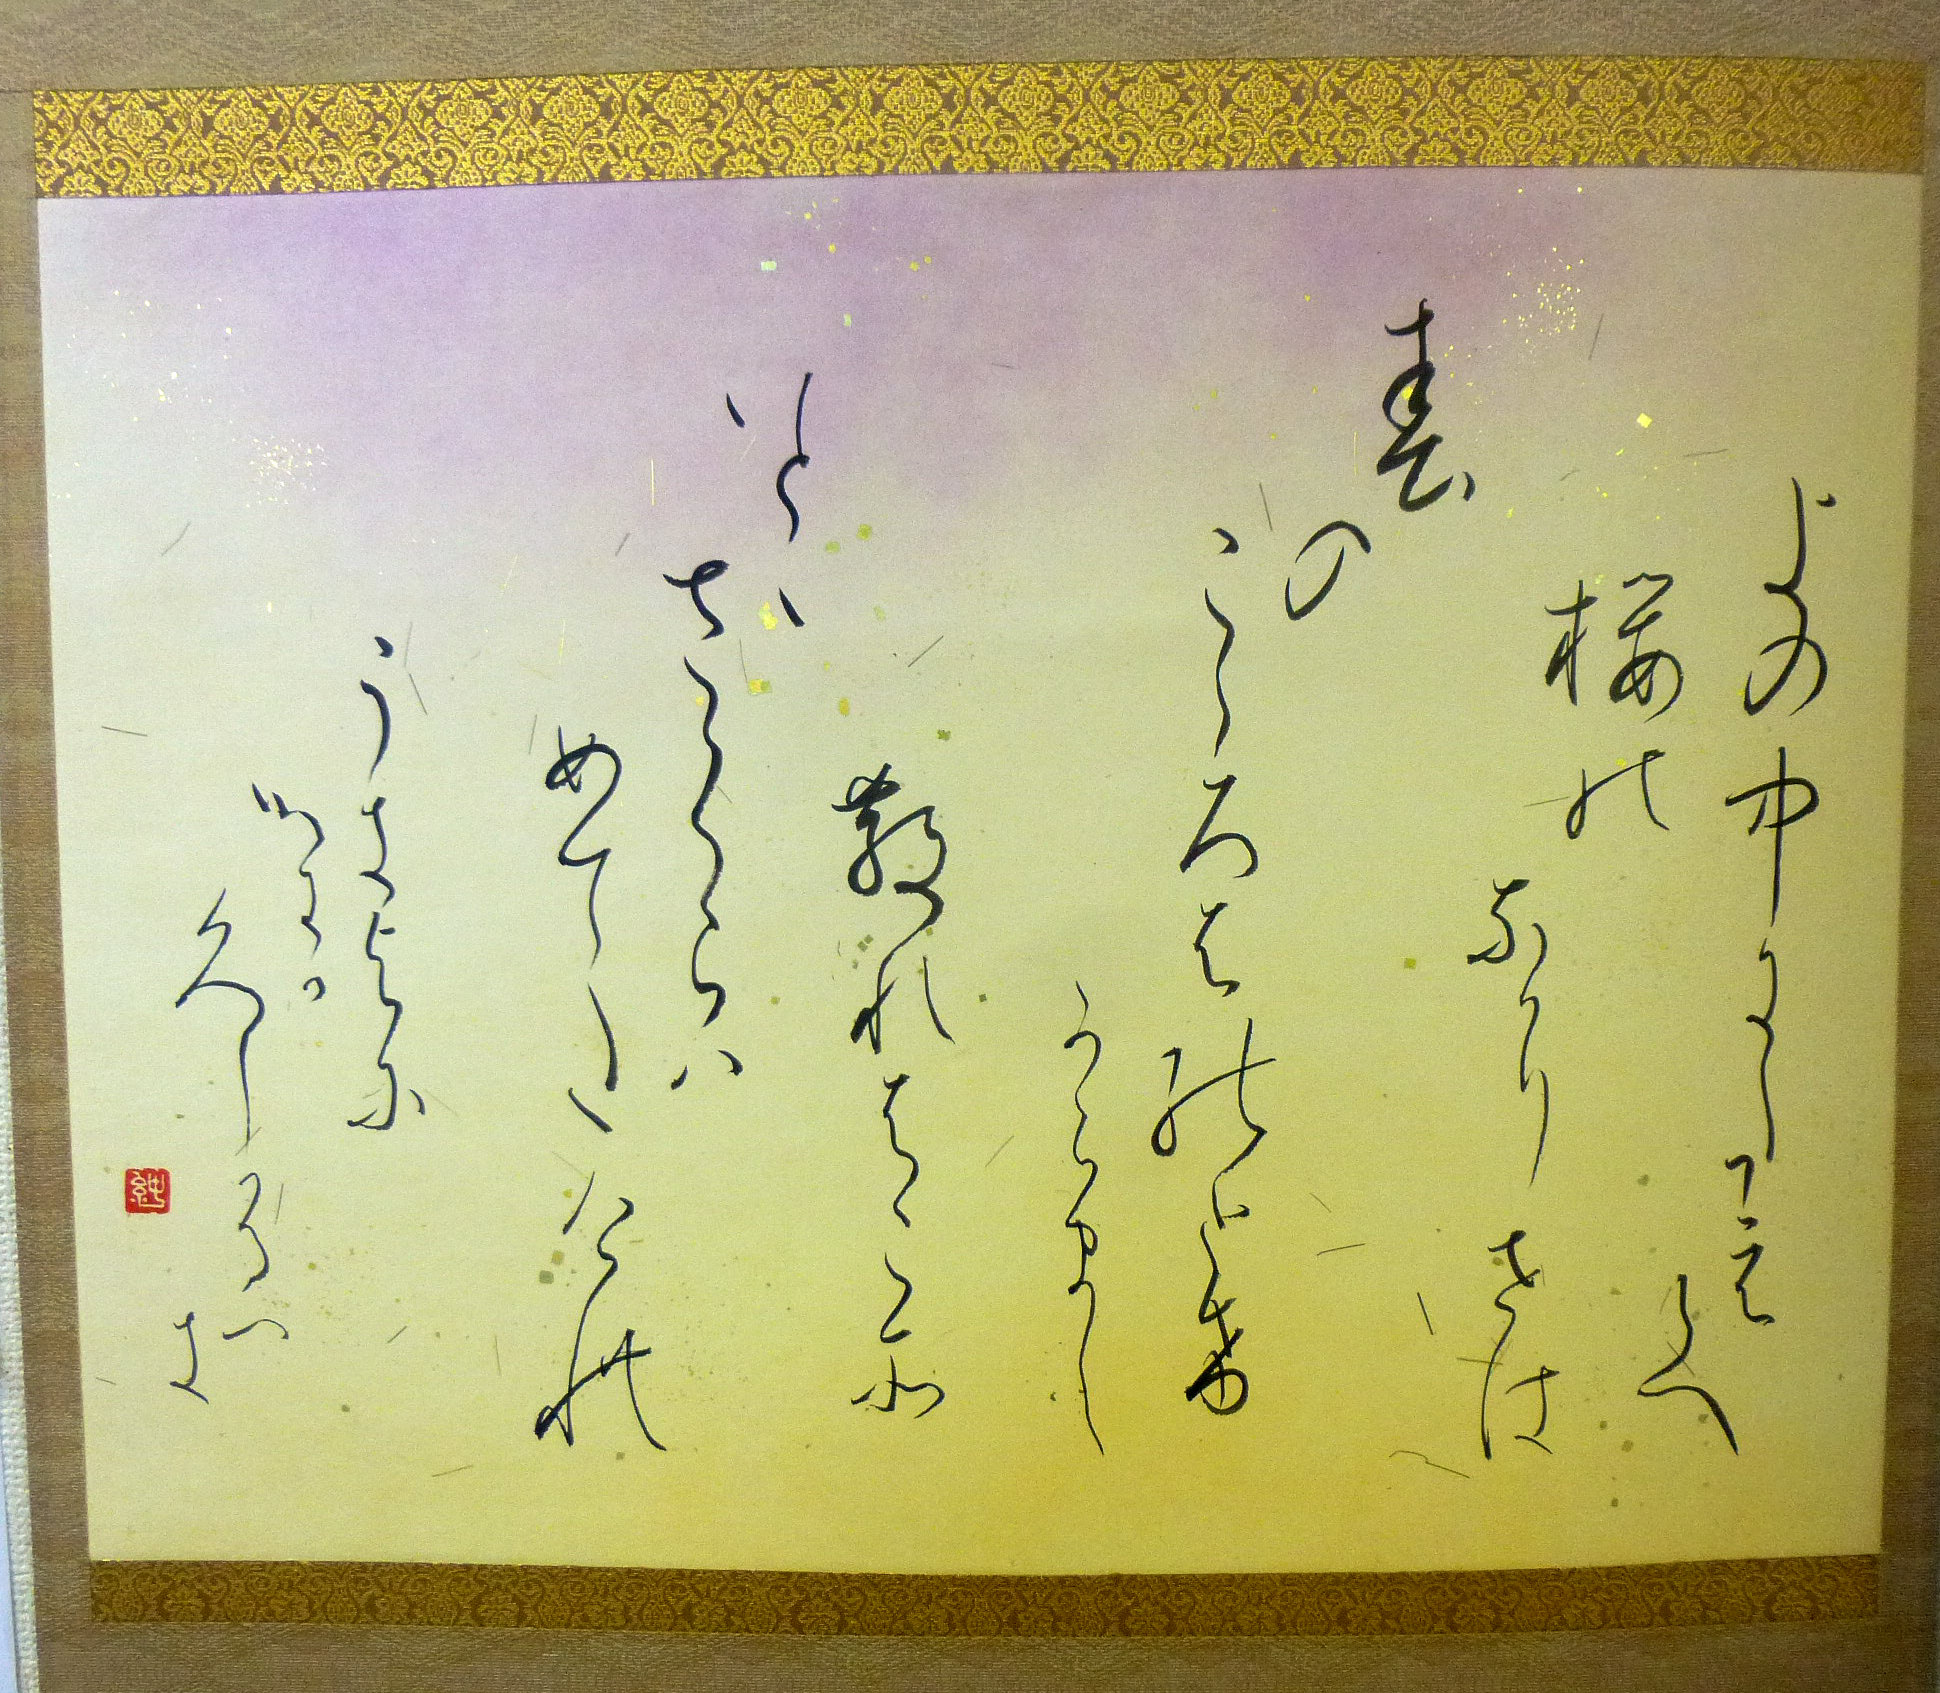 よの中にたえて
桜の
なかりせは
春の
こゝろはのとけ
からまし
散れはこそ
いとゝ
さくらハ
めてたけれ
うきよに
なにか
久しかるへ
き